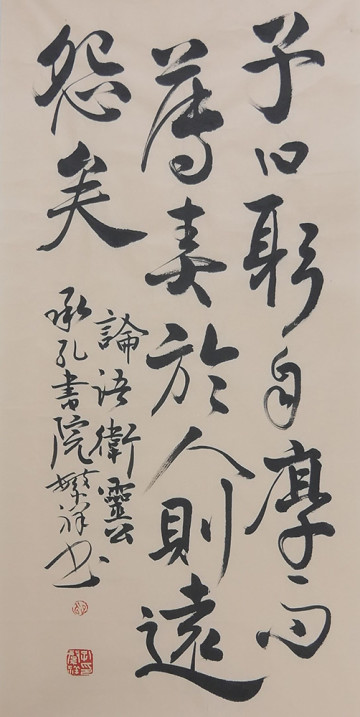 子曰躬自厚而
薄責於人則遠
怨矣
論語衛靈公
承孔書院繁祥书